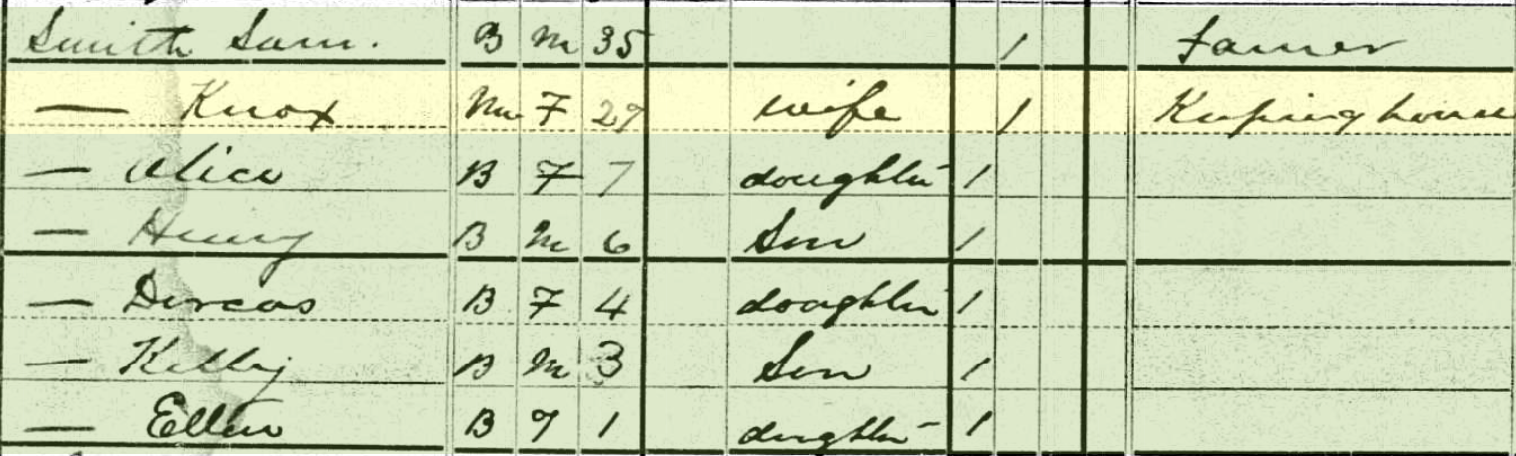 Smith Sam. B M 35 / farmer
— Knox Mu F 29 wife / Keeping house
— Alice B F 7 doughter /
— Henry B M 6 Son /
— Dorcas B F 4 doughter /
— Kelly B M 3 Son /
— Ellen B F 1 dughter /